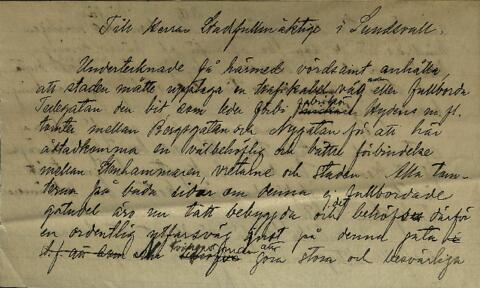 Till Herrar Stadsfullmäktige i Sundsvall.
Undertecknade få härmed vördsamt anhålla,
att staden måtte upptaga en trafikabel väg eller fullborda
Tulegatan den bit som leder förbi Rydéns m. fl.
tomter mellan Bergsgatan och Nygatan för att här
åstadkomma en välbehöflig och bättre förbindelse
mellan Stenhammaren, vretarne och staden. Alla tom-
terna på båda sidor om denna ej fullbordade
gatudel äro nu tätt bebyggda och det behöfs därför
en ordentlig utfartsväg just på denna gata i
st. f. att som göra stora och besvärliga